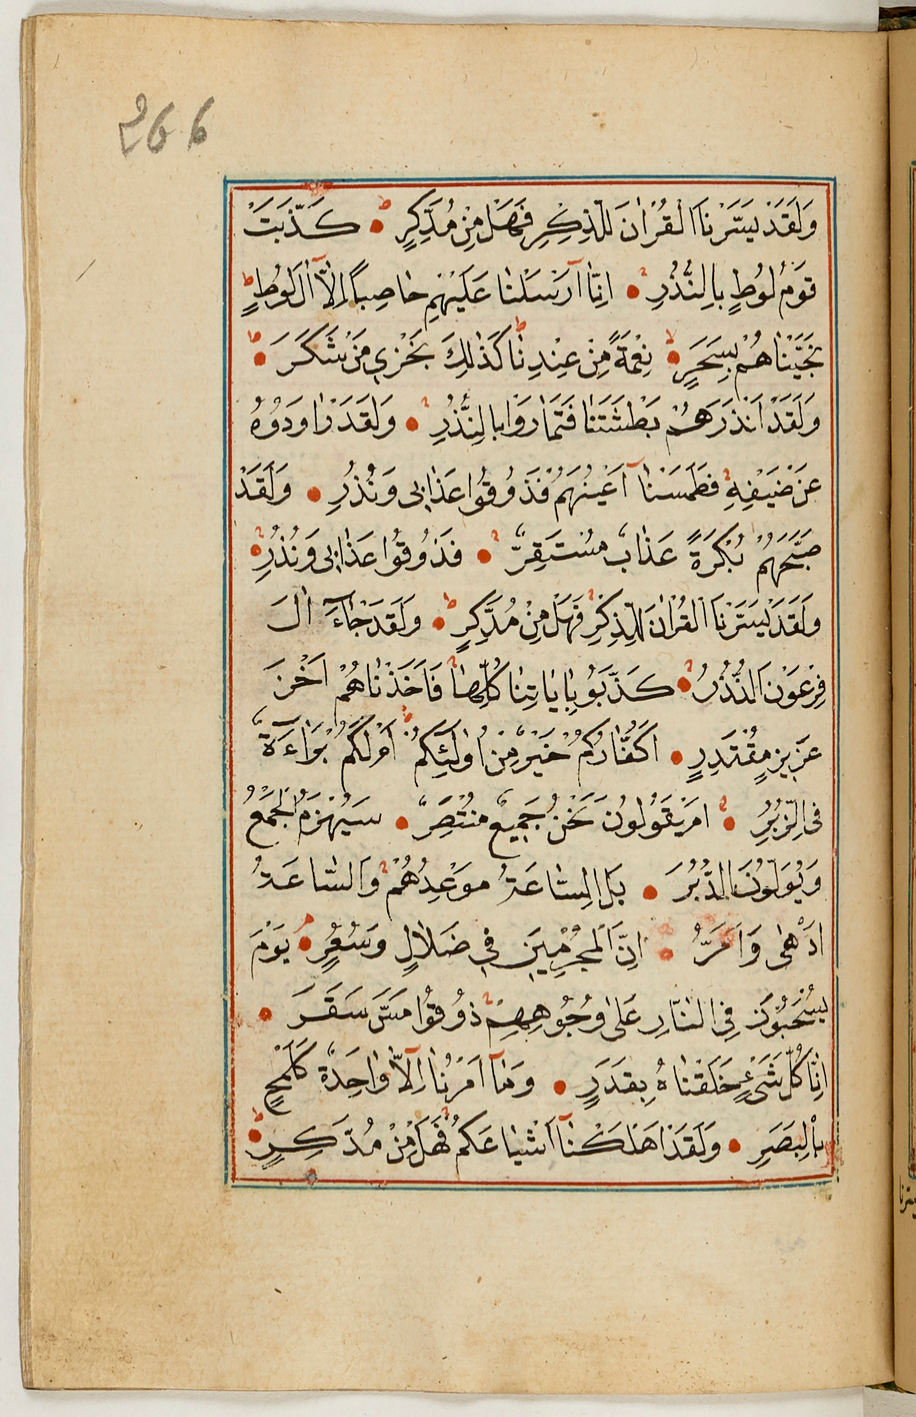 266
وَلَقَدْ يَسَّرْنَا الْقُرْاٰنَ لِلذِّكْرِ فَهَلْ مِنْ مُدَّكِرٍ ط كَذَّبَتْ
قَوْمُ لُوطٍ بِالنُّذُرِ اِنَّا اَرْسَلْنَا عَلَيْهِمْ حَاصِباً اِلَّا اٰلَ لُوطٍ ط
نَجَّيْنَاهُمْ بِسَحَرٍ لا نِعْمَةً مِنْ عِنْدِنَا ط كَذٰلِكَ نَجْزِي مَنْ شَكَرَ
وَلَقَدْ اَنْذَرَهُمْ بَطْشَتَنَا فَتَمَارَوْا بِالنُّذُرِ وَلَقَدْ رَاوَدُوهُ
عَنْ ضَيْفِهِ فَطَمَسْنَا اَعْيُنَهُمْ فَذُوقُوا عَذَابِى وَنُذُرِ وَلَقَدْ
صَبَّحَهُمْ بُكْرَةً عَذَابٌ مُسْتَقِرٌّ فَذُوقُوا عَذَابِى وَنُذُرِ
وَلَقَدْ يَسَّرْنَا الْقُرْاٰنَ لِلذِّكْرِ فَهَلْ مِنْ مُدَّكِرٍ ط وَلَقَدْ جَاءَ اٰلَ
فِرْعَوْنَ النُّذُرُ كَذَّبُوا بِاٰيَاتِنَا كُلِّهَا فَاَخَذْنَاهُمْ اَخْذَ
عَزِيزٍ مُقْتَدِرٍ اَكُفَّارُكُمْ خَيْرٌ مِنْ اُولٰئِكُمْ اَمْ لَكُمْ بَرَاءَةٌ
فِى الزُّبُرِ اَمْ يَقُولُونَ نَحْنُ جَمِيعٌ مُنْتَصِرٌ سَيُهْزَمُ الْجَمْعُ
وَيُوَلُّونَ الدُّبُرَ بَلِ السَّاعَةُ مَوْعِدُهُمْ وَالسَّاعَةُ
اَدْهٰى وَاَمَرُّ اِنَّ الْمُجْرِمِينَ فِي ضَلَالٍ وَسُعُرٍ يَوْمَ
يُسْحَبُونَ فِي النَّارِ عَلٰى وُجُوهِهِمْ ذُوقُوا مَسَّ سَقَرَ
اِنَّا كُلَّ شَىْءٍ خَلَقْنَاهُ بِقَدَرٍ وَمَا اَمْرُنَا اِلَّا وَاحِدَةٌ كَلَمْحٍ
بِالْبَصَرِ وَلَقَدْ اَهْلَكْنَا اَشْيَاعَكُمْ فَهَلْ مِنْ مُدَّكِرٍ ط